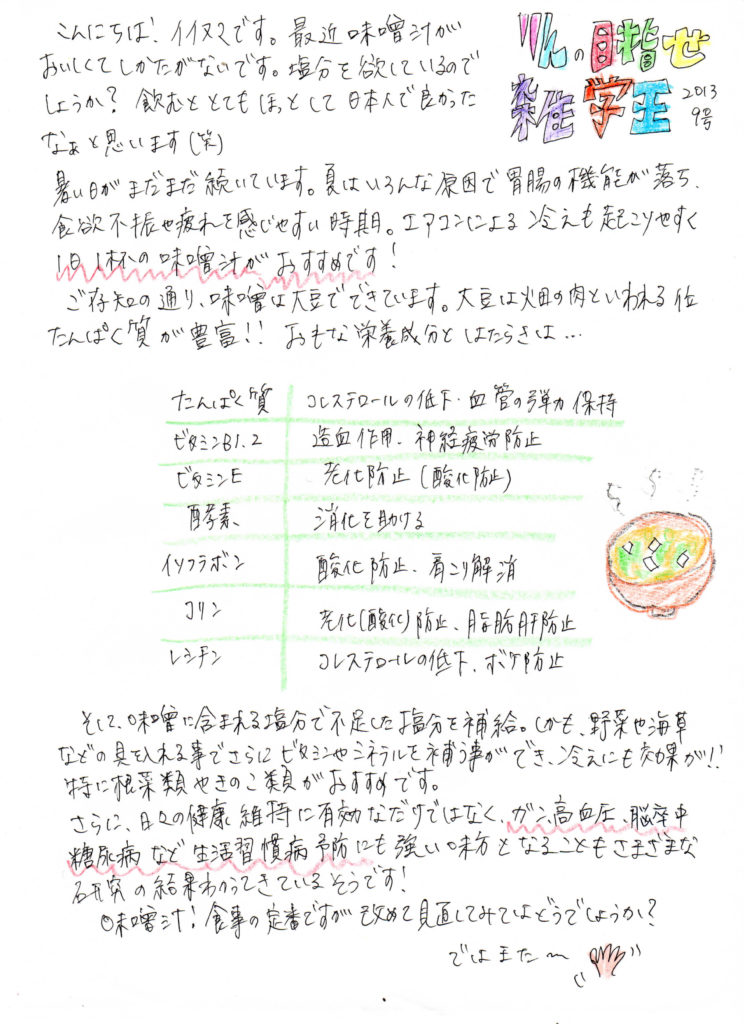 りんの目指せ
雑学王 2013
9号
こんにちは、イイヌマです。最近味噌汁が
おいしくてしかたがないです。塩分を欲しているので
しょうか？飲むととてもほっとして日本人で良かった
なぁと思います(笑)
暑い日がまだまだ続いています。夏はいろんな原因で胃腸の機能が落ち、
食欲不振や疲れを感じやすい時期。エアコンによる冷えも起こりやすく
1日1杯の味噌汁がおすすめです！
ご存知の通り、味噌は大豆でできています。大豆は畑の肉といわれる位
たんぱく質が豊富!! おもな栄養成分とはたらきは…
たんぱく質 コレステロールの低下・血管の弾力保持
ビタミンB1.2 造血作用、神経疲労防止
ビタミンE 老化防止(酸化防止)
酵素 消化を助ける
イソフラボン 酸化防止、肩こり解消
コリン 老化(酸化)防止、脂肪肝防止
レシチン コレステロールの低下、ボケ防止
そして、味噌に含まれる塩分で不足した塩分を補給。しかも、野菜や海草
などの具を入れる事でさらにビタミンやミネラルを補う事ができ、冷えにも効果が!!
特に根菜類やきのこ類がおすすめです。
さらに、日々の健康維持に有効なだけではなく、ガン、高血圧、脳卒中
糖尿病など生活習慣病予防にも強い味方となることもさまざまな
研究の結果わかってきているそうです！
味噌汁！食事の定番ですが改めて見直してみてはどうでしょうか？
ではまた〜